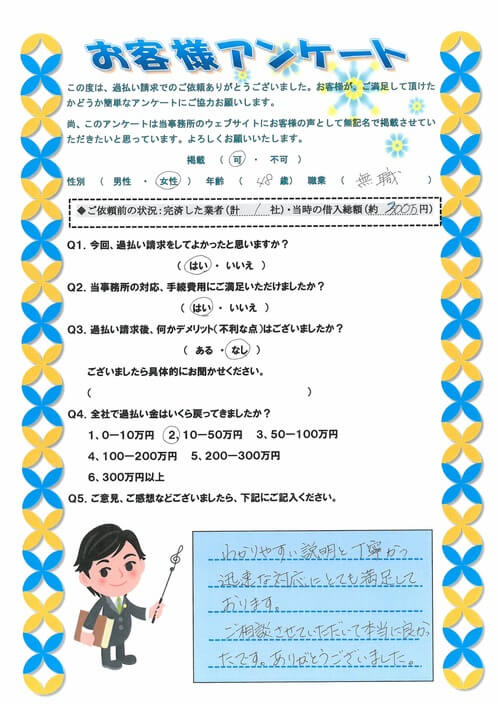 お客様アンケート
この度は、過払い請求でのご依頼ありがとうございました。お客様が、ご満足して頂けた
かどうか簡単なアンケートにご協力お願いします。
尚、このアンケートは当事務所のウェブサイトにお客様の声として無記名で掲載させてい
ただきたいと思っています。よろしくお願いいたします。
掲載 ( 可 ・ 不可 )
性別 ( 男性 ・ 女性 ) 年齢 ( 48 歳) 職業 ( 無職 )
◆ご依頼前の状況:完済した業者(計 1 社)・当時の借入総額(約 300万円)
Q1. 今回、過払い請求をしてよかったと思いますか?
( はい ・ いいえ )
Q2. 当事務所の対応、手続費用にご満足いただけましたか?
( はい ・ いいえ )
Q3. 過払い請求後、何かデメリット(不利な点)はございましたか?
( ある ・ なし )
ございましたら具体的にお聞かせください。
( )
Q4. 全社で過払い金はいくら戻ってきましたか?
1、0-10万円 2、10-50万円 3、50-100万円
4、100-200万円 5、200-300万円
6、300万円以上
Q5. ご意見、ご感想などございましたら、下記にご記入ください。
わかりやすい説明と丁寧かつ
迅速な対応にとても満足して
おります。
ご相談させていただいて本当に良かっ
たです。ありがとうございました。